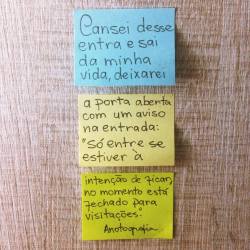 Cansei desse
entra e sai
da minha
vida, deixarei
a porta aberta
com um aviso
na entrada:
"Só entre se
estiver à
intenção de ficar,
no momento está
fechado para
visitações.
Anotografia